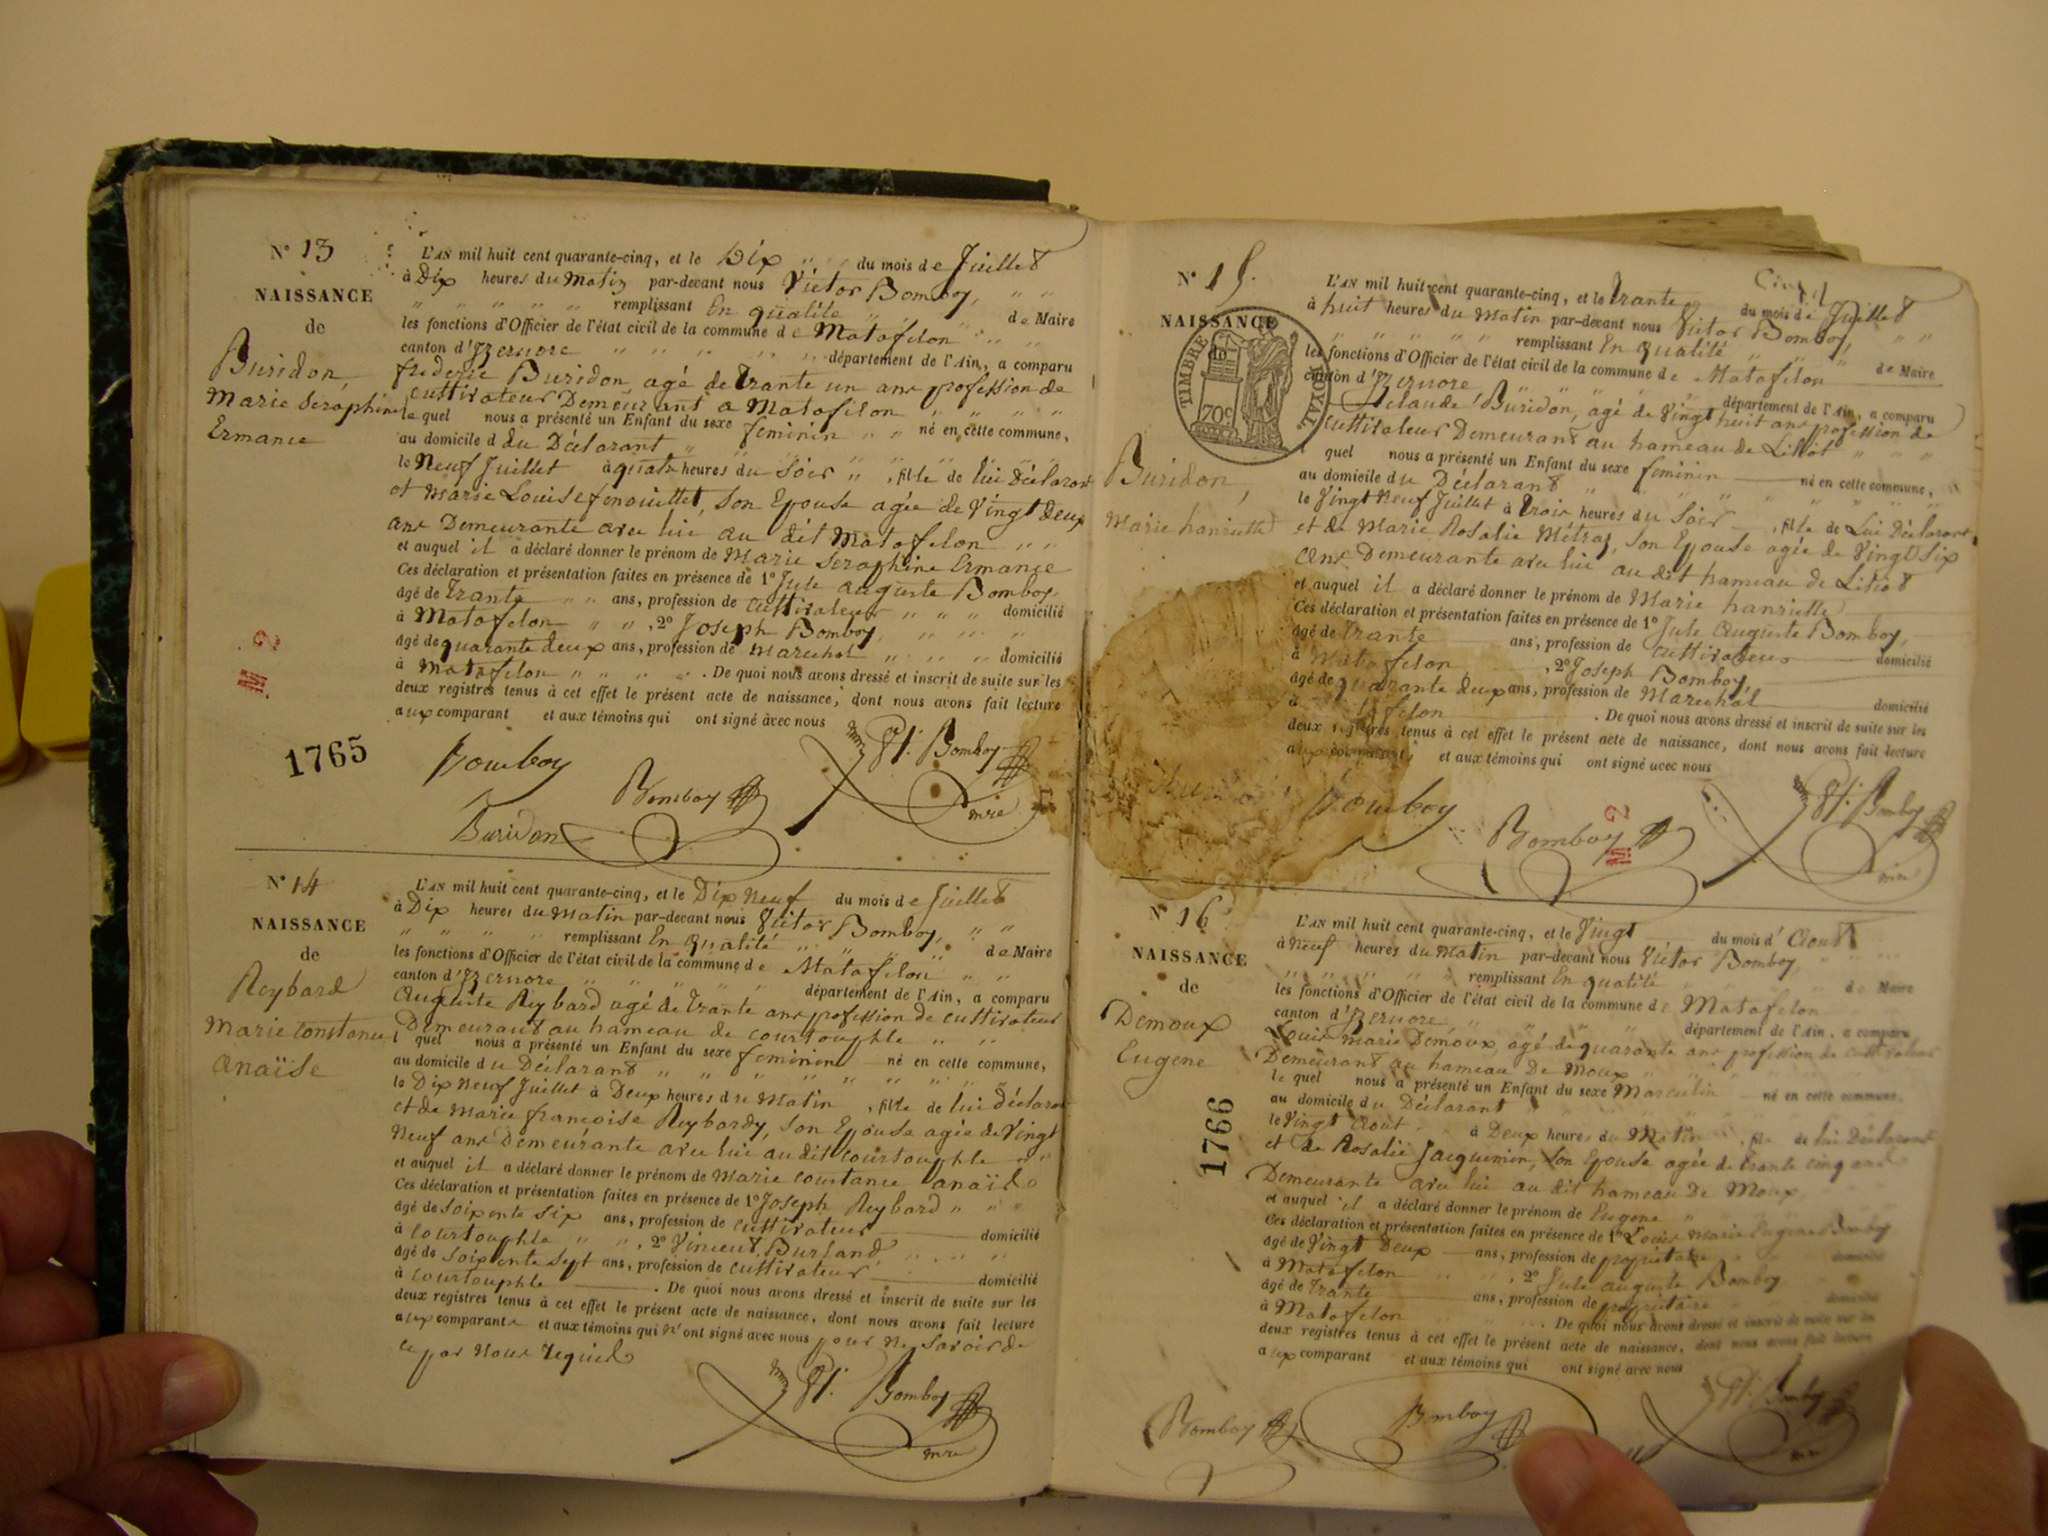 N° 13
NAISSANCE
de
Buridon,
Marie Seraphine
Ermance
L'AN mil huit cent quarante-cinq, et le Dix du mois de Juillet
à Dix heures du Matin par-devant nous Victor Bomboy,
remplissant En qualité de Maire
les fonctions d'Officier de l'état civil de la commune de Matafelon
canton d'Izernore département de l'Ain, a comparu
frederic Buridon, agé de trante un ans profession de
cultivateur Demeurant a Matafelon
lequel nous a présenté un Enfant du sexe feminin né en cette commune,
au domicile d du Déclarant
le Neuf Juillet à quatre heures du Soir, fille de lui Déclarant
et Marie Louise fenouillet, Son Epouse agée de Vingt deux
ans Demeurante avec lui au dit Matafelon
et auquel il a déclaré donner le prénom de Marie Seraphine Ermance
Ces déclaration et présentation faites en présence de 1° Jule auguste Bomboy,
âgé de trante ans, profession de cultivateur domicilié
à Matafelon, 2° Joseph Bomboy,
âgé de quarante deux ans, profession de Marechal domicilié
à Matafelon. De quoi nous avons dressé et inscrit de suite sur les
deux registres tenus à cet effet le présent acte de naissance, dont nous avons fait lecture
aux comparant et aux témoins qui ont signé avec nous
M. 2
1765
Bomboy
Bomboy
Vt. Bomboy
mre
Buridon
N° 14
NAISSANCE
de
Reybard
Marie Constance
Anaïse
L'AN mil huit cent quarante-cinq, et le Dix Neuf du mois de Juillet
à Dix heures du Matin par-devant nous Victor Bomboy,
remplissant En qualité de Maire
les fonctions d'Officier de l'état civil de la commune de Matafelon
canton d'Izernore département de l'Ain, a comparu
Auguste Reybard agé de trante ans profession de cultivateur
Demeurant au hameau de courtouphle
l quel nous a présenté un Enfant du sexe feminin né en cette commune,
au domicile du Déclarant
le Dix Neuf Juillet à Deux heures du Matin, fille de lui Déclarant
et de Marie françoise Reybardy, Son Epouse agée de Vingt
Neuf ans Demeurante avec lui au dit courtouphle
et auquel il a déclaré donner le prénom de Marie constance anaïde
Ces déclaration et présentation faites en présence de 1° Joseph Reybard
âgé de Soixente Six ans, profession de cultivateur domicilié
à courtouphle, 2° Vincent Burland
âgé de Soixente Sept ans, profession de cultivateur domicilié
à courtouphle. De quoi nous avons dressé et inscrit de suite sur les
deux registres tenus à cet effet le présent acte de naissance, dont nous avons fait lecture
aux comparants et aux témoins qui n'ont signé avec nous pour ne Savoir de
ce par Nous requis
Vt. Bomboy
mre
N° 15.
NAISSANCE
de
TIMBRE ROYAL
70c
Buridon,
Marie hanriette
L'AN mil huit cent quarante-cinq, et le trante du mois de Juillet
à huit heures du Matin par-devant nous Victor Bomboy,
remplissant En qualité de Maire
les fonctions d'Officier de l'état civil de la commune de Matafelon
canton d'Izernore département de l'Ain, a comparu
claude Buridon, agé de Vingt huit ans profession de
cultivateur Demeurant au hameau de Lillot
l quel nous a présenté un Enfant du sexe feminin né en cette commune,
au domicile du Déclarant
le Vingt Neuf Juillet à trois heures du Soir, fille de Lui Déclarant
et de Marie Rosalie Métraz, Son Epouse agée de Vingt Six
Ans Demeurante avec lui au dit hameau de Lillot
et auquel il a déclaré donner le prénom de Marie hanriette
Ces déclaration et présentation faites en présence de 1° Jule Auguste Bomboy,
âgé de trante ans, profession de cultivateur domicilié
à Matafelon, 2° Joseph Bomboy
âgé de quarante deux ans, profession de Marechal domicilié
à Matafelon. De quoi nous avons dressé et inscrit de suite sur les
deux registres tenus à cet effet le présent acte de naissance, dont nous avons fait lecture
aux comparant et aux témoins qui ont signé avec nous
Bomboy
Bomboy
M. 2
Vt. Bomboy
mre
N° 16
NAISSANCE
de
Demoux
Eugene
1766
L'AN mil huit cent quarante-cinq, et le Vingt du mois d'Aout
à Neuf heures du Matin par-devant nous Victor Bomboy,
remplissant En qualité de Maire
les fonctions d'Officier de l'état civil de la commune de Matafelon
canton d'Izernore département de l'Ain, a comparu
Louis Marie Demoux, agé de quarante ans profession de cultivateur
Demeurant au hameau De Moux
lequel nous a présenté un Enfant du sexe Masculin né en cette commune,
au domicile du Déclarant
le Vingt Aout à Deux heures du Matin, fils de lui Déclarant
et de Rosalie Jacquemin, Son Epouse agée de trante cinq ans
Demeurante avec lui au dit hameau De Moux
et auquel il a déclaré donner le prénom de Eugene
Ces déclaration et présentation faites en présence de 1° Louis Marie Eugene Bomboy
âgé de Vingt Deux ans, profession de propriétaire domicilié
à Matafelon, 2° Jule auguste Bomboy
âgé de trante ans, profession de propriétaire domicilié
à Matafelon. De quoi nous avons dressé et inscrit de suite sur les
deux registres tenus à cet effet le présent acte de naissance, dont nous avons fait lecture
aux comparant et aux témoins qui ont signé avec nous
Bomboy
Bomboy
Vt. Bomboy
mre